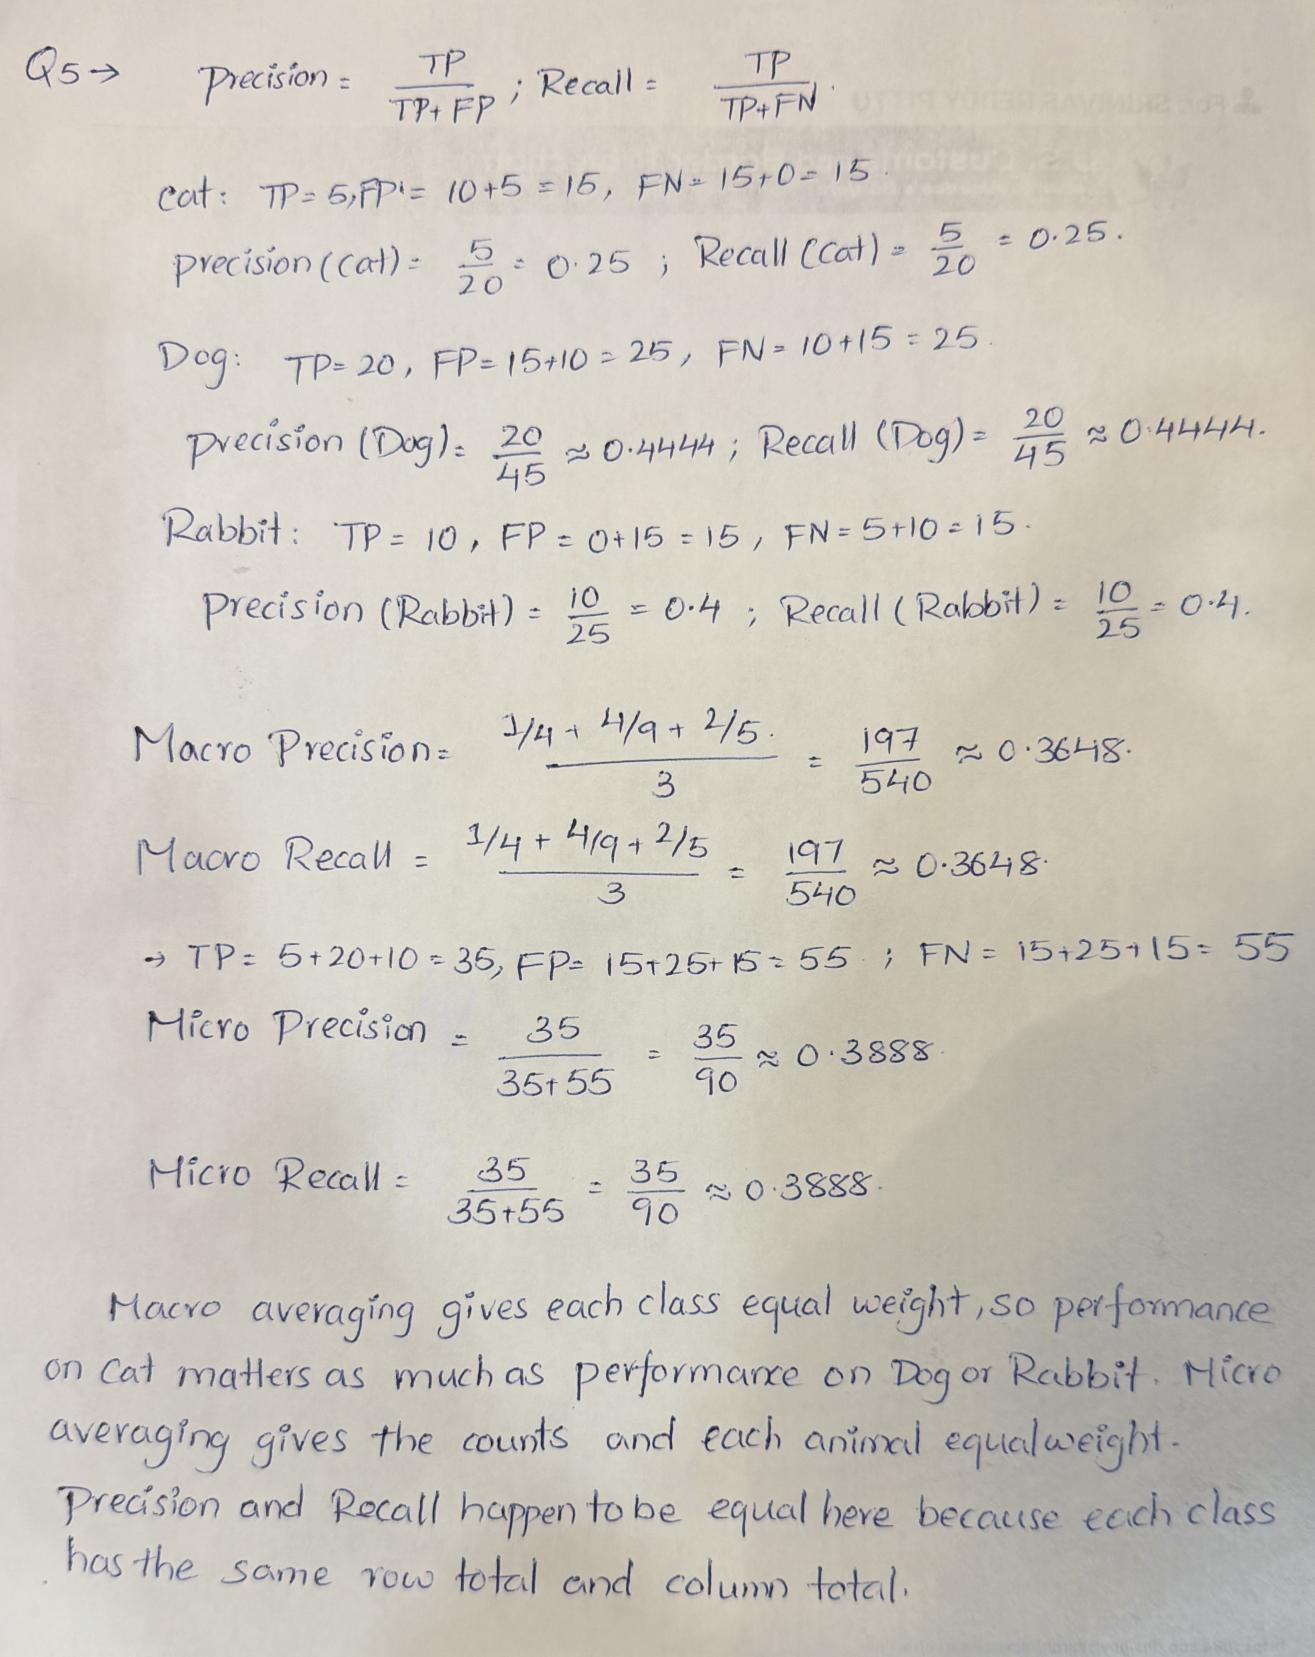 Q5→ Precision = TP/(TP+FP) ; Recall = TP/(TP+FN).
Cat: TP = 5, FP = 10+5 = 15, FN = 15+0 = 15.
precision (Cat) = 5/20 = 0.25 ; Recall (Cat) = 5/20 = 0.25.
Dog: TP = 20, FP = 15+10 = 25, FN = 10+15 = 25.
precision (Dog) = 20/45 ≈ 0.4444 ; Recall (Dog) = 20/45 ≈ 0.4444.
Rabbit: TP = 10, FP = 0+15 = 15, FN = 5+10 = 15.
Precision (Rabbit) = 10/25 = 0.4 ; Recall (Rabbit) = 10/25 = 0.4.
Macro Precision = (1/4 + 4/9 + 2/5)/3 = 197/540 ≈ 0.3648.
Macro Recall = (1/4 + 4/9 + 2/5)/3 = 197/540 ≈ 0.3648.
→ TP = 5+20+10 = 35, FP = 15+25+15 = 55 ; FN = 15+25+15 = 55
Micro Precision = 35/(35+55) = 35/90 ≈ 0.3888.
Micro Recall = 35/(35+55) = 35/90 ≈ 0.3888.
Macro averaging gives each class equal weight, so performance
on Cat matters as much as performance on Dog or Rabbit. Micro
averaging gives the counts and each animal equal weight.
Precision and Recall happen to be equal here because each class
has the same row total and column total.